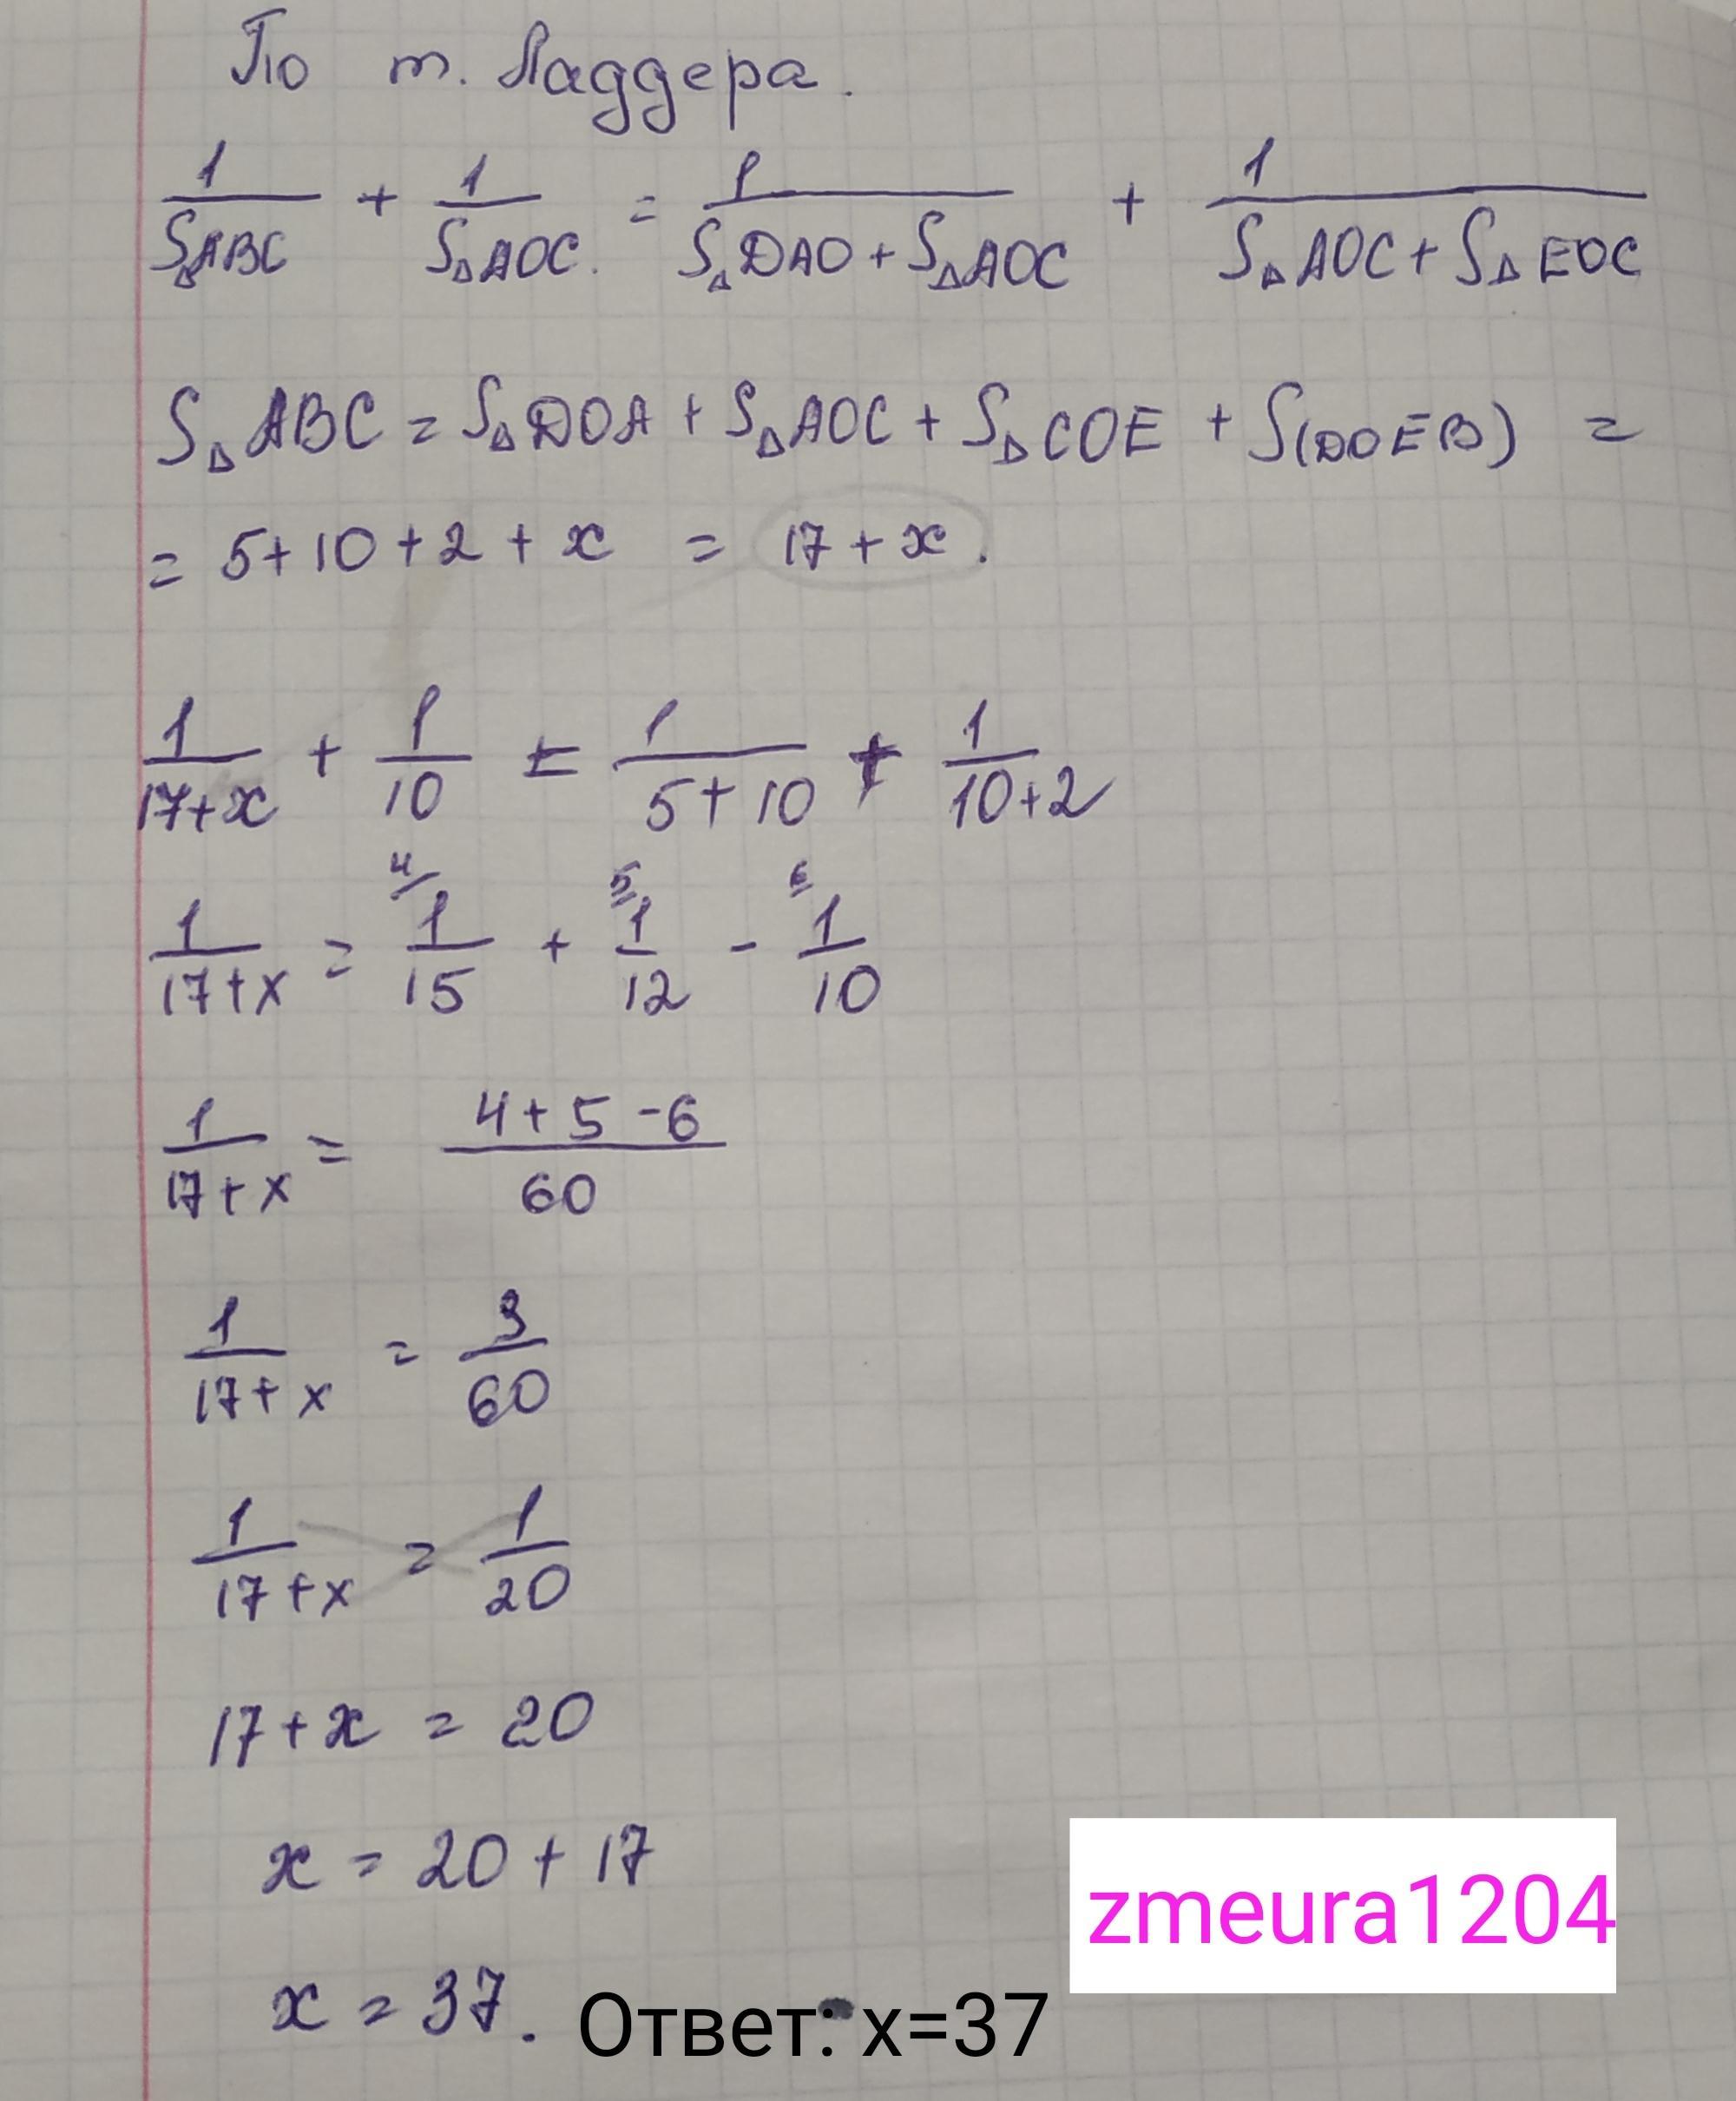 По т. Ладдера.
1/S△ABC + 1/S△AOC. = 1/(S△DAO + S△AOC) + 1/(S△AOC + S△EOC)
S△ABC = S△DOA + S△AOC + S△COE + S(DOEB) =
= 5+10+2+x = 17+x.
1/(17+x) + 1/10 = 1/(5+10) + 1/(10+2)
4/ 5 6
1/(17+x) = 1/15 + 1/12 - 1/10
1/(17+x) = (4+5-6)/60
1/(17+x) = 3/60
1/(17+x) = 1/20
17+x = 20
x = 20+17
zmeura1204
x = 37. Ответ: x=37